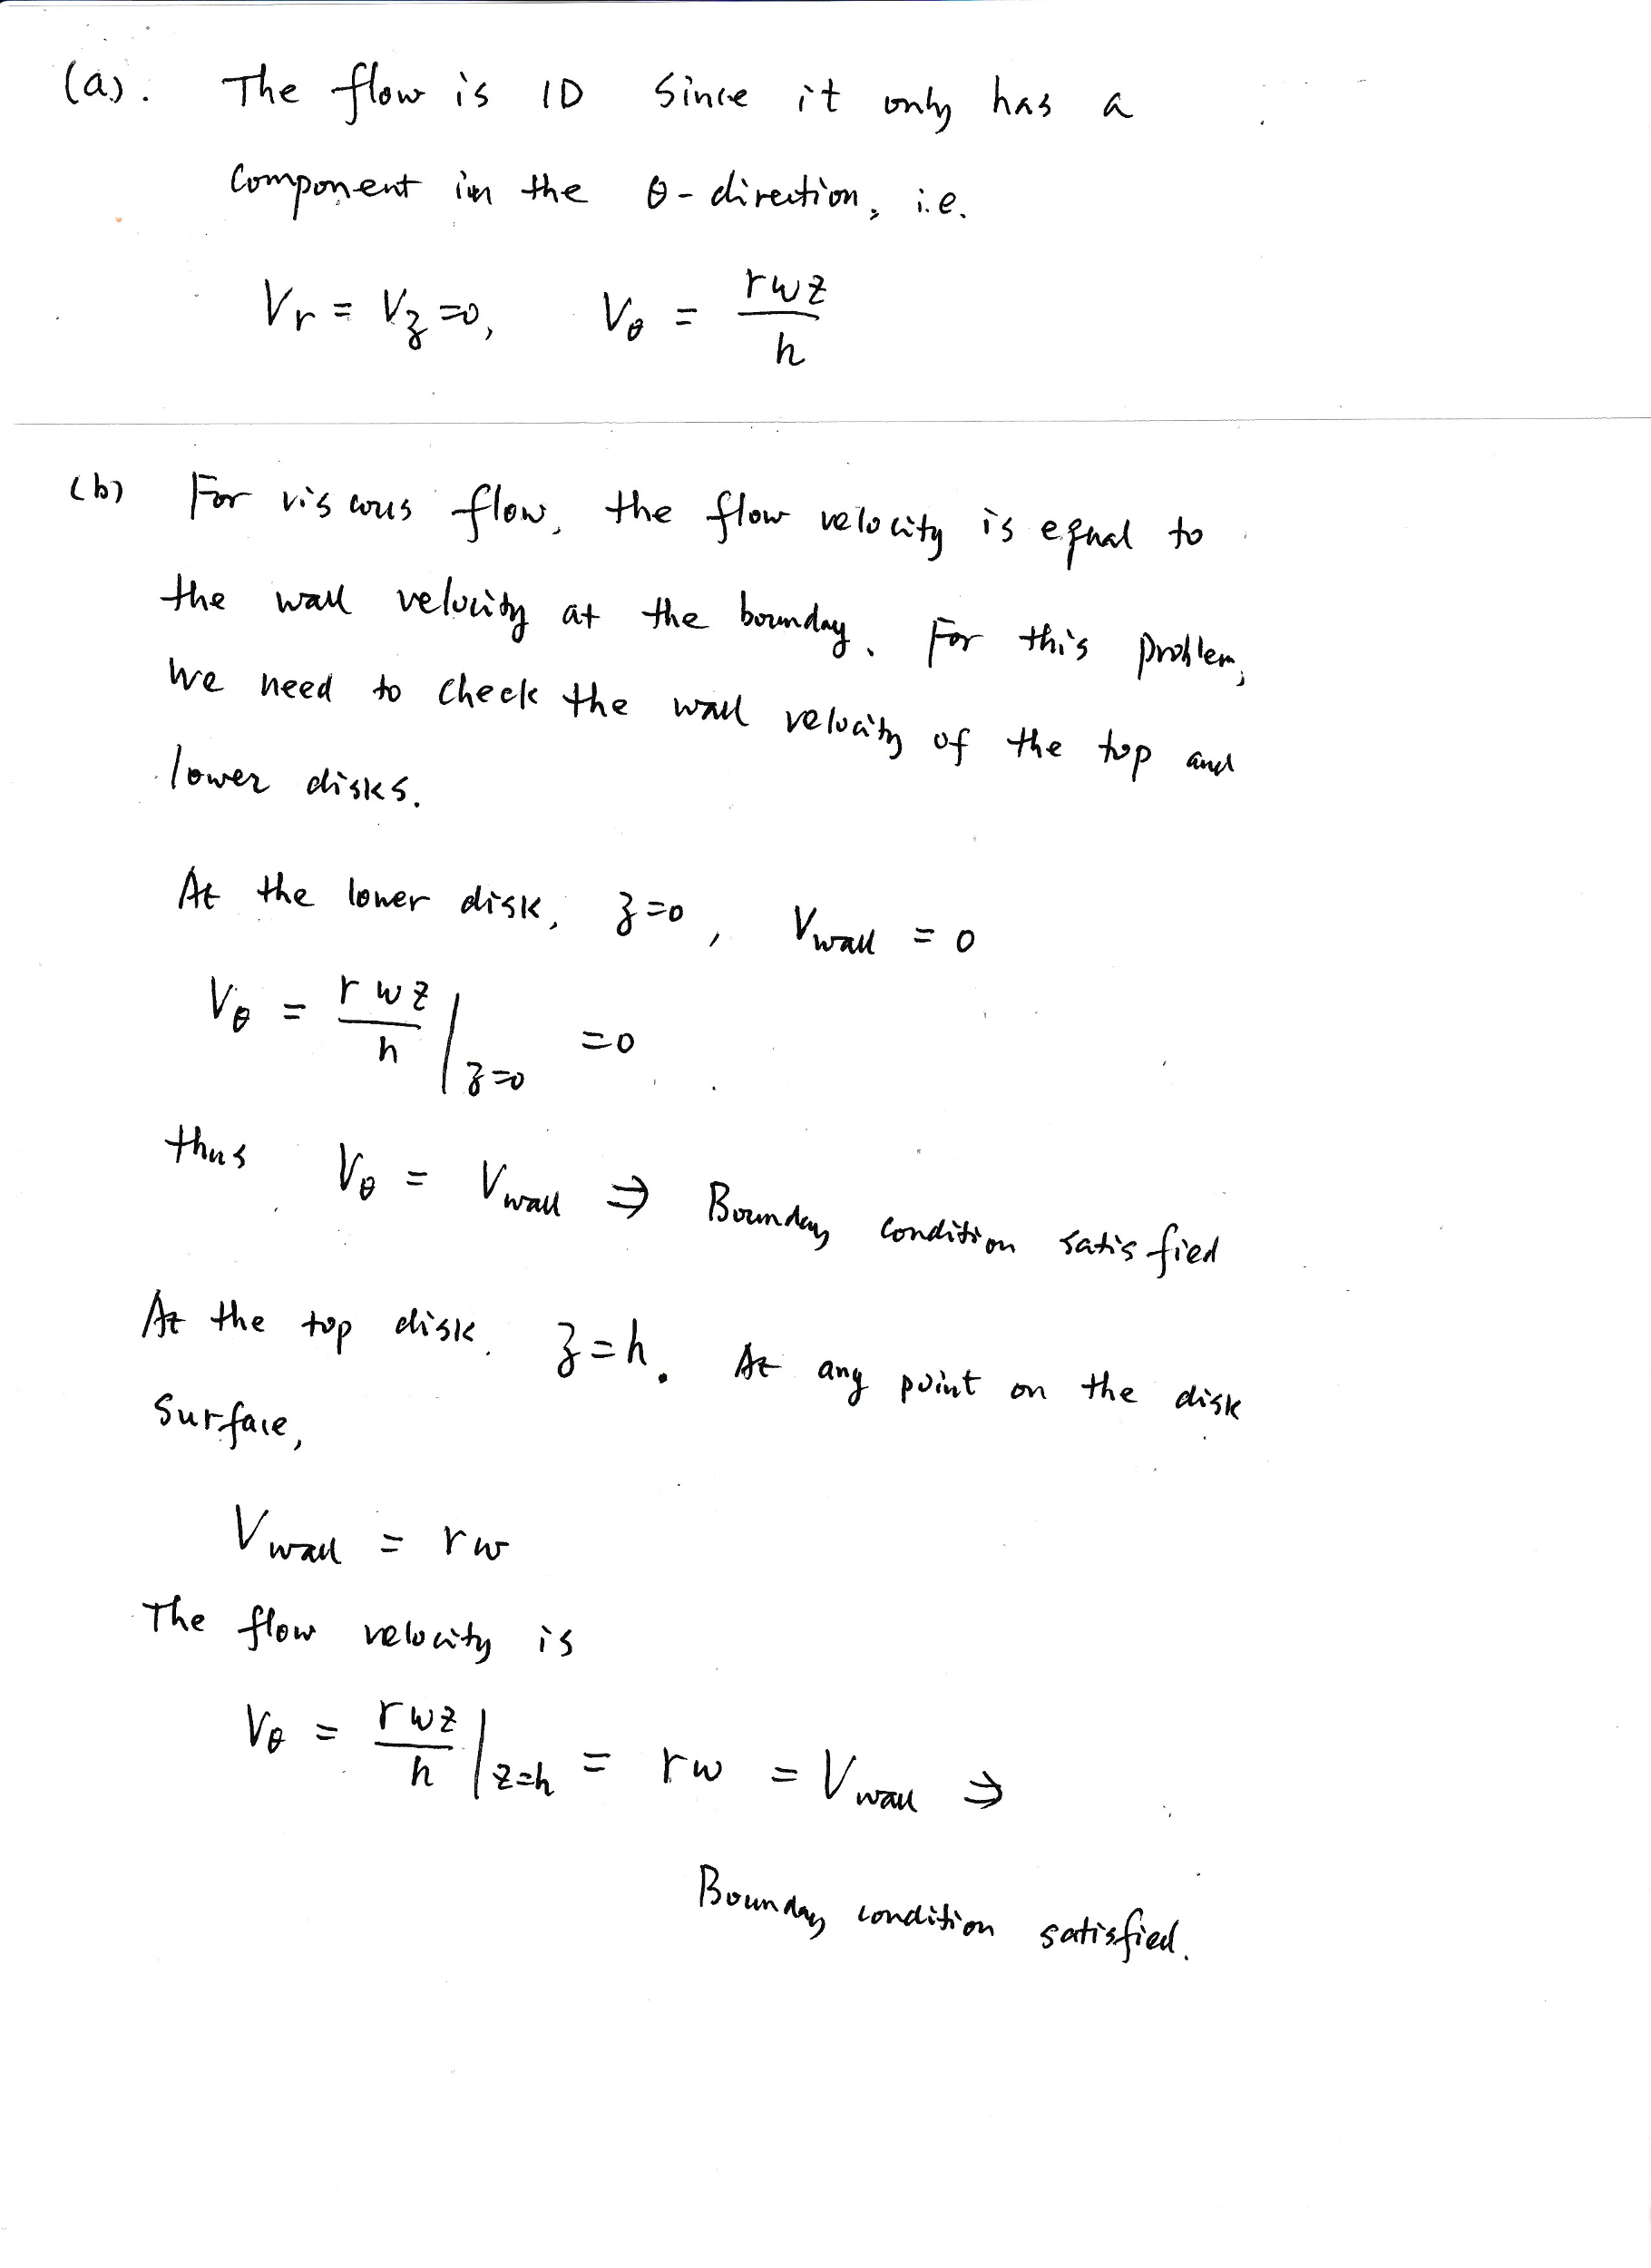 (a). The flow is 1D since it only has a
component in the θ-direction, i.e.
Vr = Vz = 0, Vθ = rwz/h
(b) For viscous flow, the flow velocity is equal to
the wall velocity at the boundary. For this problem,
we need to check the wall velocity of the top and
lower disks.
At the lower disk, z=0, Vwall = 0
Vθ = rwz/h |z=0 = 0
thus Vθ = Vwall ⇒ Boundary condition satisfied
At the top disk. z=h. At any point on the disk
surface,
Vwall = rw
The flow velocity is
Vθ = rwz/h |z=h = rw = Vwall ⇒
Boundary condition satisfied.